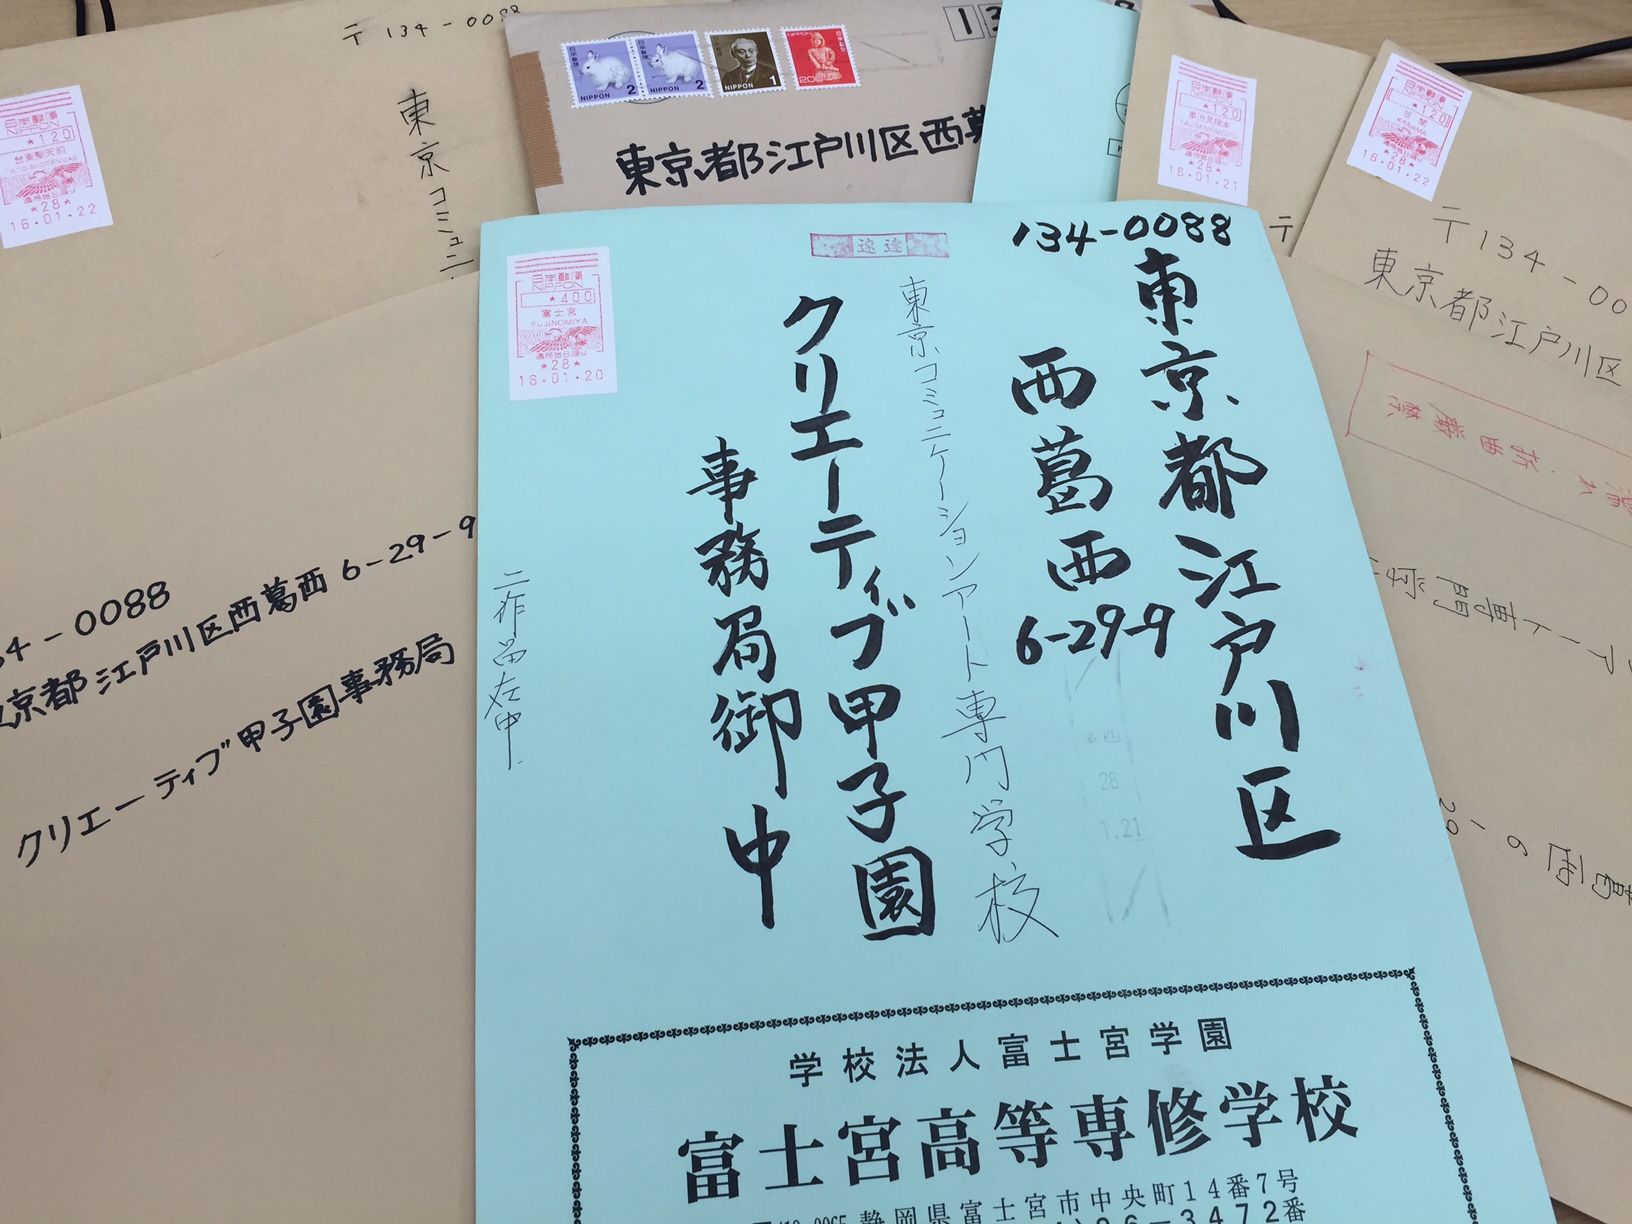 〒134-0088
東京コミュニ
日本郵便
NIPPON
*120
台東聖天前
*28*
16.01.22
NIPPON 2
NIPPON 2
NIPPON 1
NIPPON
20
東京都江戸川区西葛
日本郵便
NIPPON
*120
*28*
16.01.21
〒
日本郵便
NIPPON
*120
笠間
KASAMA
*28*
16.01.22
〒134-00
東京都江戸川区
折曲厳禁
ア ート専門学
葛西 6-29
34-0088
京都江戸川区西葛西6-29-9
クリエーティブ甲子園事務局
日本郵便
NIPPON
*400
富士宮
FUJINOMIYA
*28*
16.01.20
速達
134-0088
東京都江戸川区
西葛西
6-29-9
東京コミュニケーションアート専門学校
クリエーティブ甲子園
事務局御中
二作品在中
28
1.21
学校法人富士宮学園
富士宮高等専修学校
静岡県富士宮市中央町14番7号
26-3472番